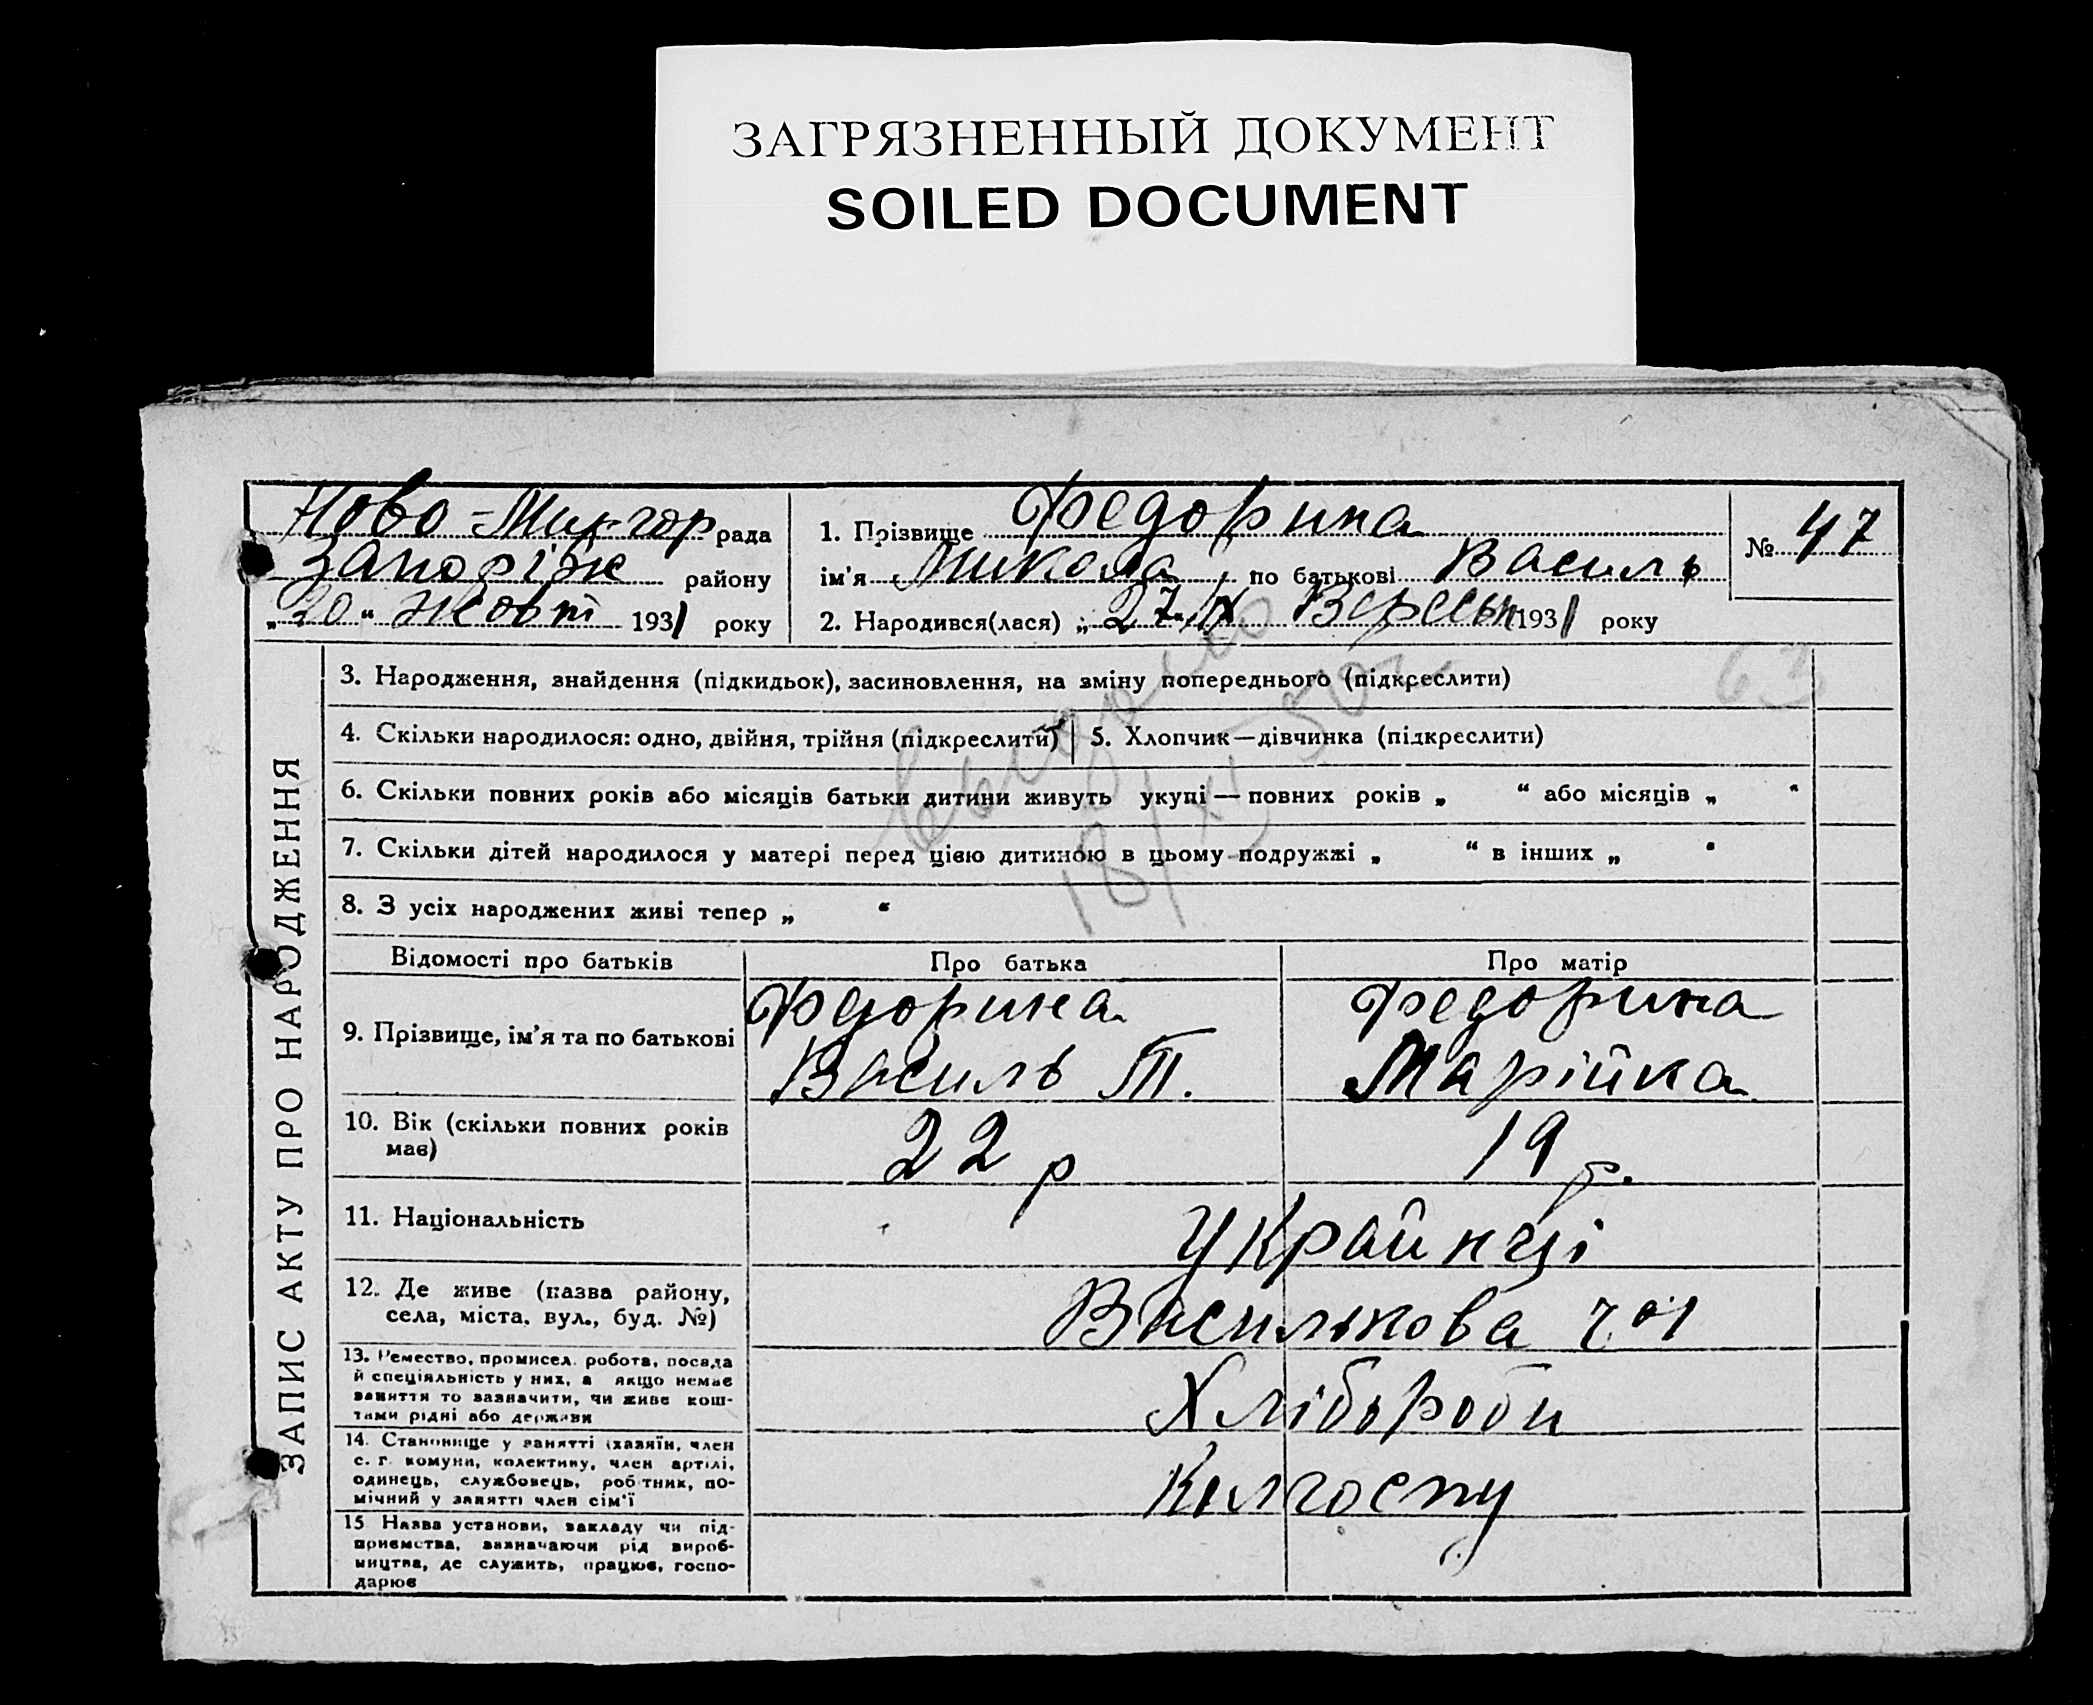 ЗАГРЯЗНЕННЫЙ ДОКУМЕНТ
SOILED DOCUMENT
Ново-Миргор рада
Запоріж району
„20“ Жовт 1931 року
1. Прізвище Федорина
ім’я Микола по батькові Василь
2. Народився(лася) „27“ IX Вересня 1931 року
№ 47
63
ЗАПИС АКТУ ПРО НАРОДЖЕННЯ
3. Народження, знайдення (підкидьок), засиновлення, на зміну попереднього (підкреслити)
4. Скільки народилося: одно, двійня, трійня (підкреслити) 5. Хлопчик—дівчинка (підкреслити)
6. Скільки повних років або місяців батьки дитини живуть укупі — повних років „ “ або місяців „ “
7. Скільки дітей народилося у матері перед цією дитиною в цьому подружжі „ “ в інших „ “
8. З усіх народжених живі тепер „ “
Відомості про батьків Про батька Про матір
9. Прізвище, ім’я та по батькові
Федорина
Василь Т.
Федорина
Марійка
10. Вік (скільки повних років
має)
22 р
19 р.
11. Національність
Українці
12. Де живе (назва району,
села, міста, вул., буд. №)
Василькова
13. Ремество, промисел, робота, посада
й спеціяльність у них, а якщо немає
заняття то зазначити, чи живе кош-
тами рідні або держави
Хлібороби
14. Становище у занятті (хазяїн, член
с. г. комуни, колективу, член артілі,
одинець, службовець, робітник, по-
мічний у занятті член сім’ї
Колгоспу
15 Назва установи, закладу чи під-
приємства, зазначаючи рід вироб-
ництва, де служить, працює, госпо-
дарює